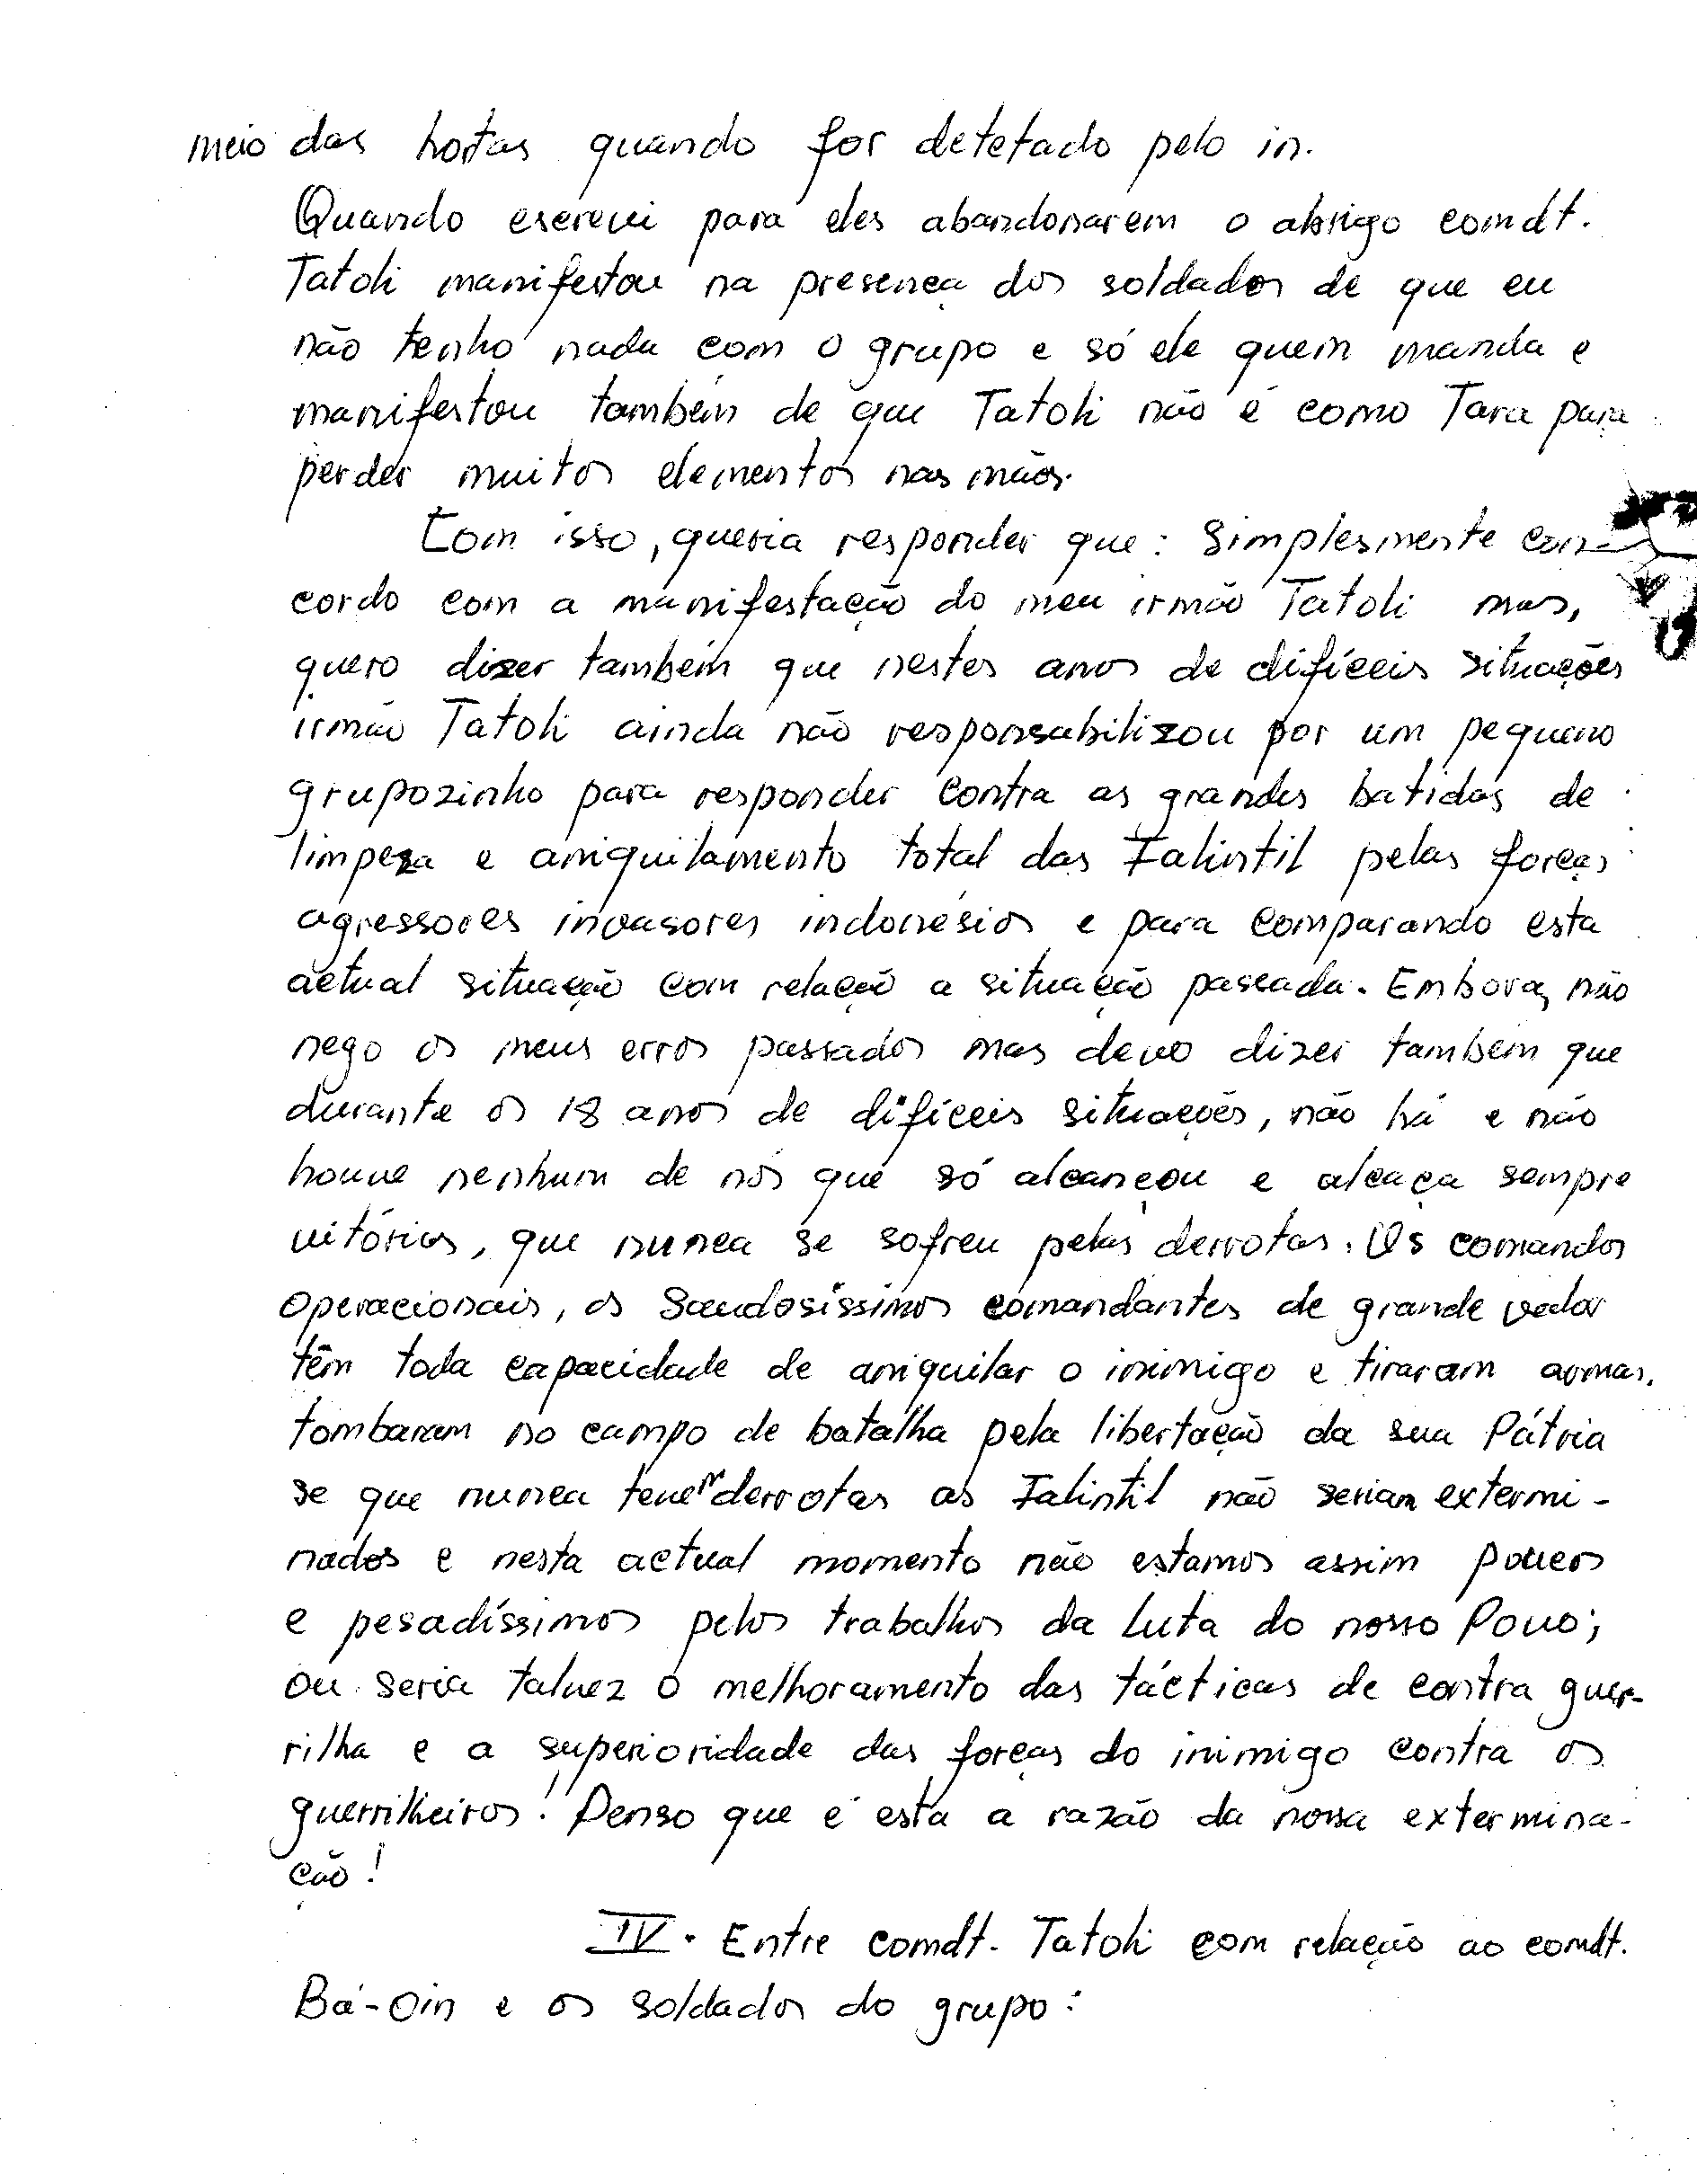 meio das hortas quando for detetado pelo in.
Quando escrevi para eles abandonarem o abrigo comdt.
Tatoli manifestou na presença dos soldados de que eu
não tenho nada com o grupo e só ele quem manda e
manifestou também de que Tatoli não é como Tara para
perder muitos elementos nas mãos.
Com isso, queria responder que: Simplesmente con-
cordo com a manifestação do meu irmão Tatoli mas,
quero dizer também que nestes anos de difíceis situações
irmão Tatoli ainda não responsabilizou por um pequeno
grupozinho para responder contra as grandes batidas de
limpeza e aniquilamento total das Falintil pelas forças
agressores invasores indonésios e para comparando esta
actual situação com relação a situação passada. Embora, não
nego os meus erros passados mas devo dizer também que
durante os 18 anos de difíceis situações, não há e não
houve nenhum de nós que só alcançou e alcaça sempre
vitórias, que nunca se sofreu pelas derrotas. Os comandos
operacionais, os saudosíssimos comandantes de grande valor
têm toda capacidade de aniquilar o inimigo e tiraram armas.
tombaram no campo de batalha pela libertação da sua Pátria
se que nunca tevem derrotas as Falintil não seriam extermi-
nados e nesta actual momento não estamos assim poucos
e pesadíssimos pelos trabalhos da Luta do nosso Povo;
ou seria talvez o melhoramento das tácticas de contra guer-
rilha e a superioridade das forças do inimigo contra os
guerrilheiros! Penso que é esta a razão da nossa extermina-
ção!
IV. Entre comdt. Tatoli com relação ao comdt.
Bá-Oin e os soldados do grupo: